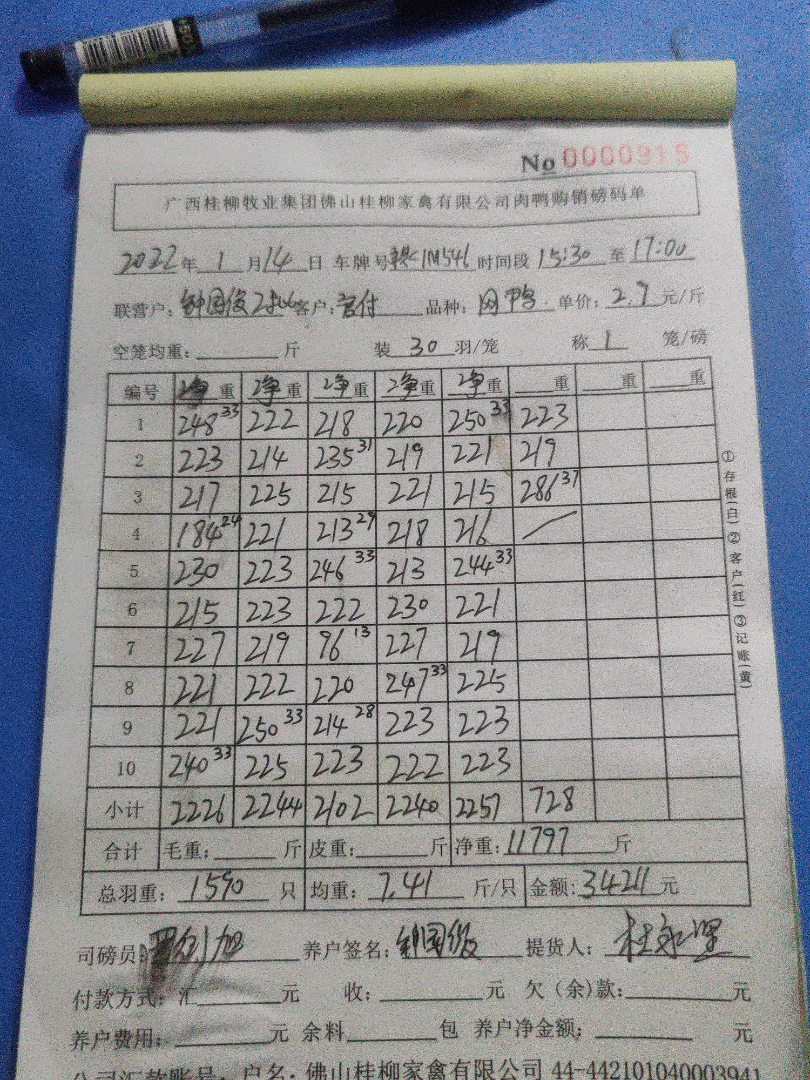 No 0000915
广西桂柳牧业集团佛山桂柳家禽有限公司肉鸭购销磅码单
2022年 1 月 14 日 车牌号 1M546 时间段 15:30 至 17:00
联营户: 钟国俊 客户: 品种: 网鸭 单价: 2.9 元/斤
空笼均重: 斤 装 30 羽/笼 称 1 笼/磅
编号 净重 净重 净重 净重 净重 重 重 重
1 248 33 222 218 220 250 33 223
2 223 214 235 31 219 221 219
3 217 225 215 221 215 286 37
4 184 24 221 213 29 218 216
5 230 223 246 33 213 244 33
6 215 223 222 230 221
7 227 219 96 13 227 219
8 221 222 220 247 33 225
9 221 250 33 214 28 223 223
10 240 33 225 223 222 223
小计 2226 2244 2102 2240 2257 728
合计 毛重: 斤 皮重: 斤 净重: 11797 斤
总羽重: 1590 只 均重: 7.41 斤/只 金额: 34211 元
司磅员: 养户签名: 钟国俊 提货人: 杜永坚
付款方式: 汇 元 收: 元 欠(余)款: 元
养户费用: 元 余料 包 养户净金额: 元
公司汇款账号: 户名: 佛山桂柳家禽有限公司 44-442101040003941
①存根(白)②客户(红)③记账(黄)